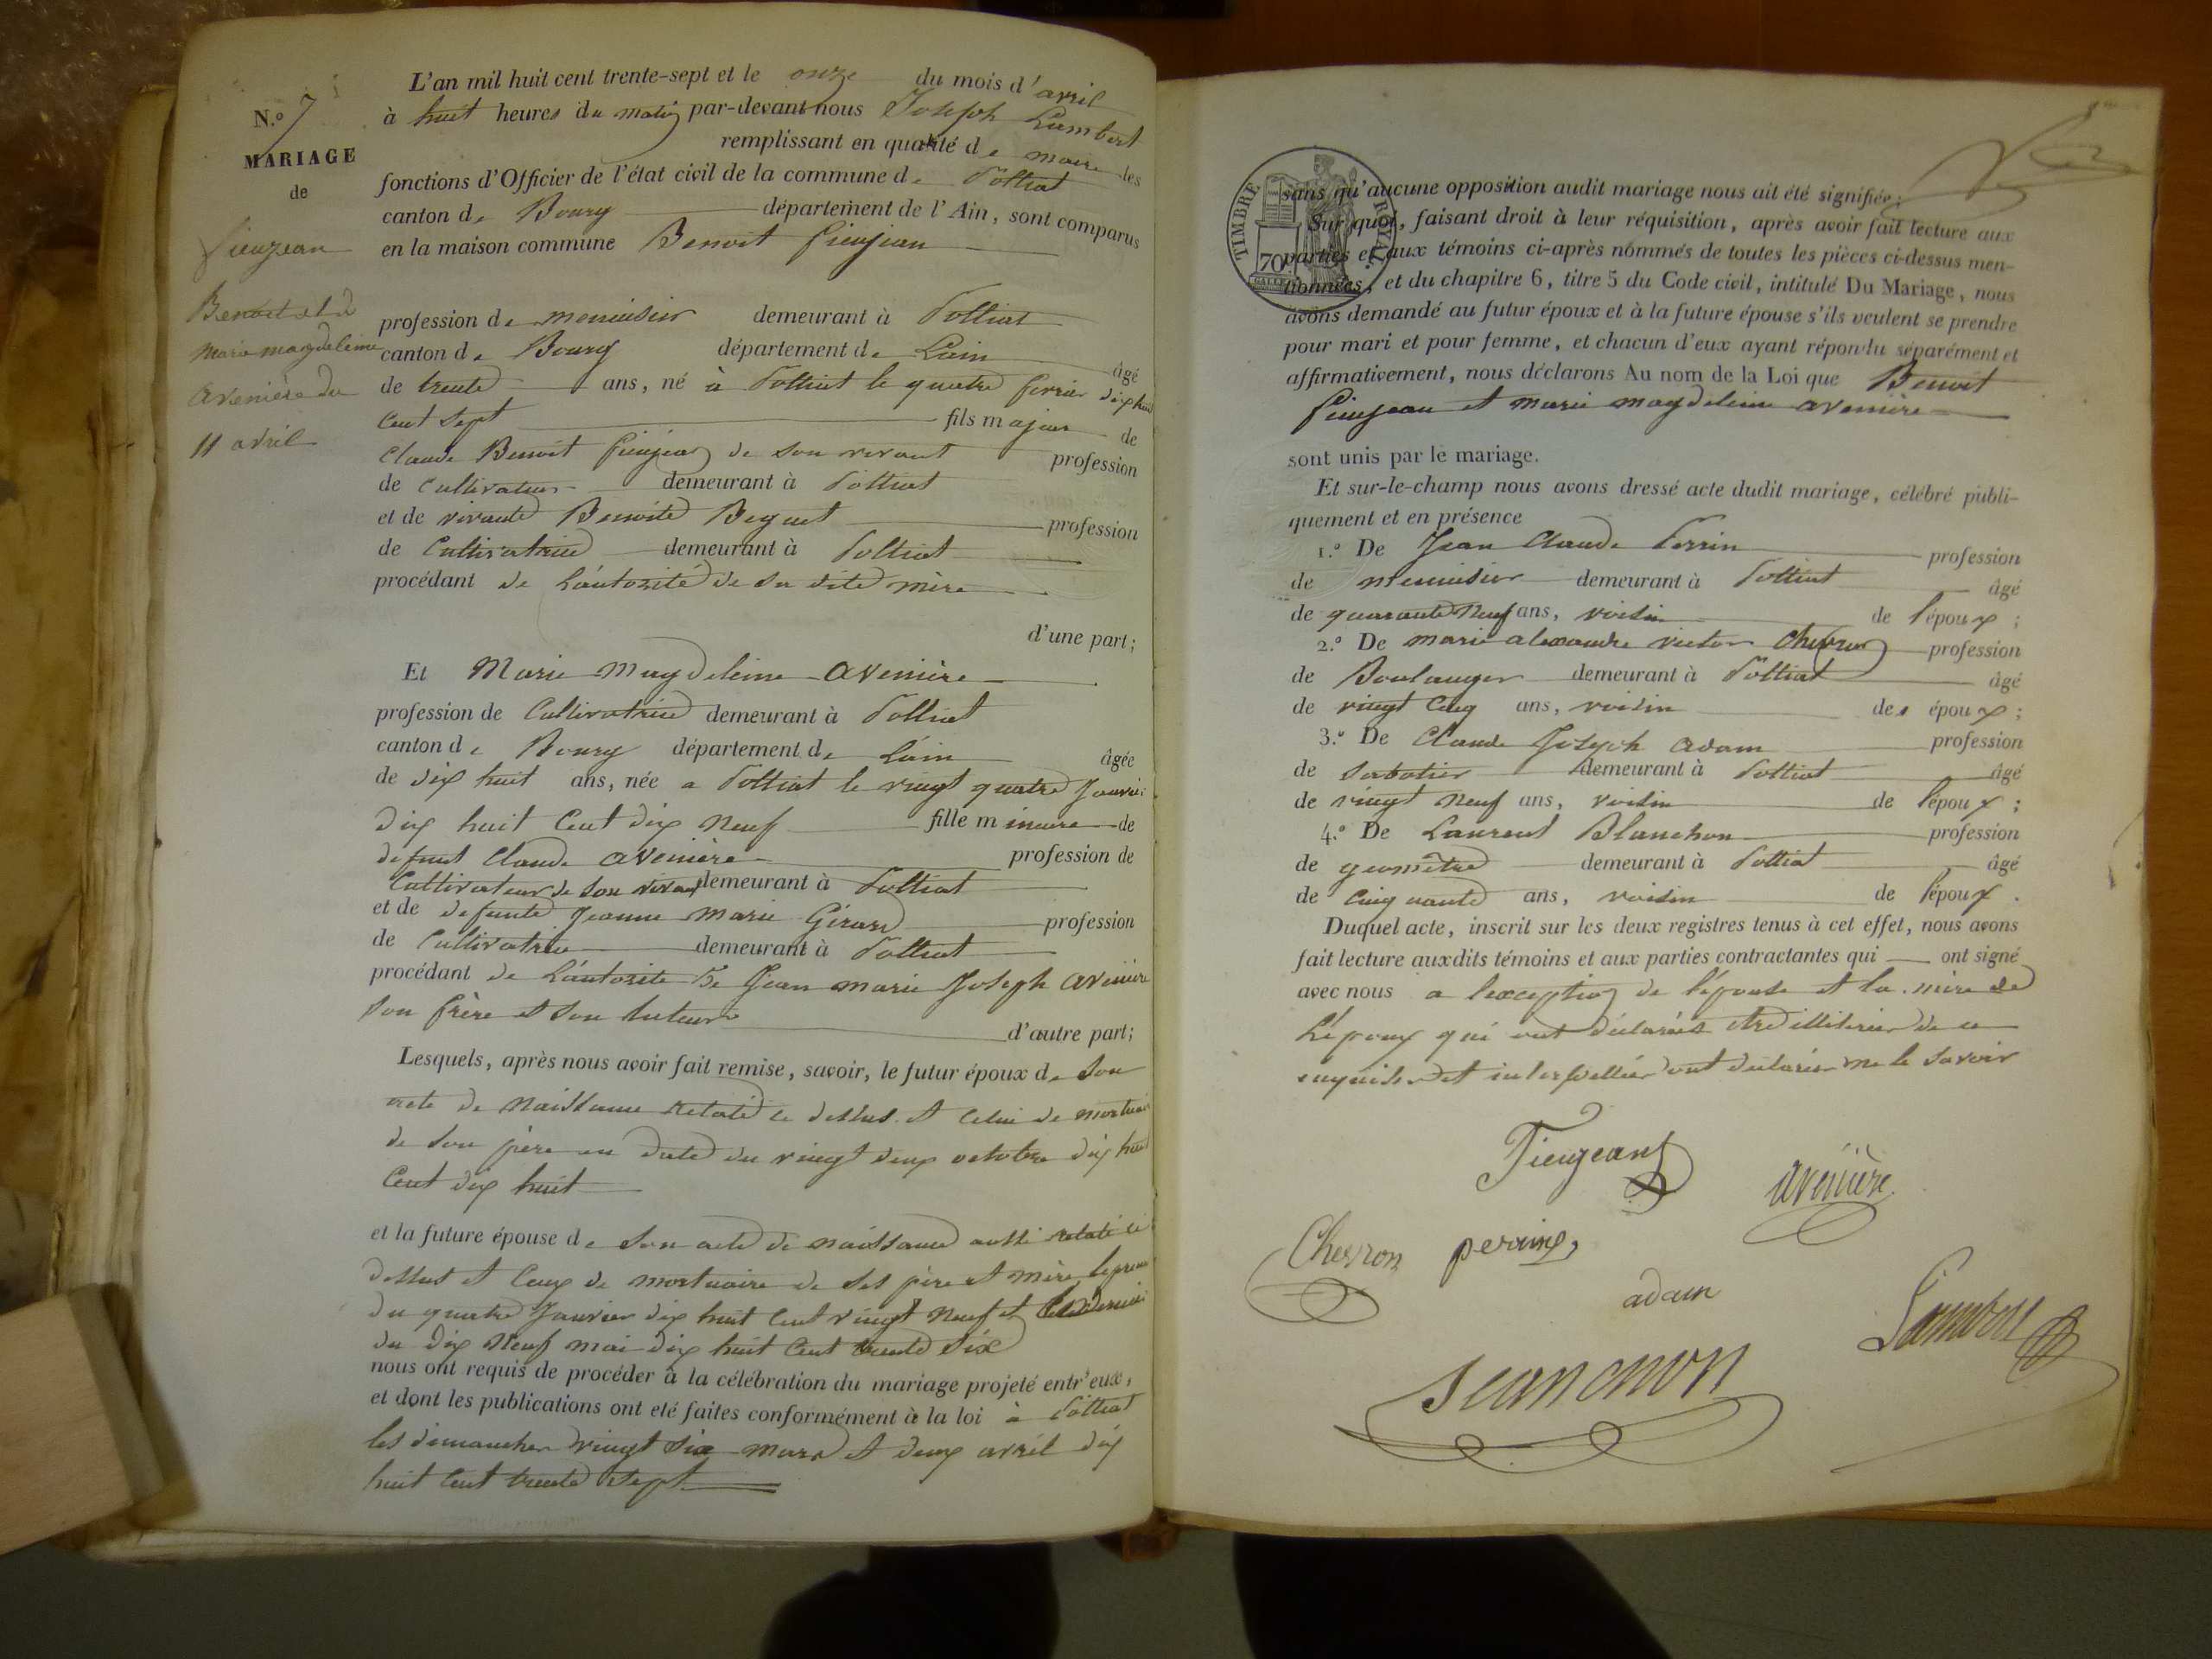 N.º 7
MARIAGE
de
Pieugean
Benoit et de
Marie magdeleine
avenière du
11 avril
L'an mil huit cent trente-sept et le onze du mois d'avril
à huit heures du matin par-devant nous Joseph Lambert
remplissant en qualité de maire les
fonctions d'Officier de l'état civil de la commune de Polliat
canton de Bourg département de l'Ain, sont comparus
en la maison commune Benoit Pieujean
profession de menuisier demeurant à Polliat
canton de Bourg département de Lain âgé
de trente ans, né à Polliat le quatre fevrier dix huit
cent sept fils majeur de
Claude Benoit Pieujean de son vivant profession
de Cultivateur demeurant à Polliat
et de vivante Benoite Beguet profession
de Cultivatrice demeurant à Polliat
procédant de Lautorité de sa dite mère
d'une part;
Et Marie Magdeleine Avenière
profession de Cultivatrice demeurant à Polliat
canton de Bourg département de Lain âgée
de dix huit ans, née a Polliat le vingt quatre Janvier
dix huit Cent dix neuf fille mineure de
defunt Claude Avenière profession de
Cultivateur de son vivant demeurant à Polliat
et de defunte Jeanne Marie Girard profession
de Cultivatrice demeurant à Polliat
procédant de Lautorite de Jean marie Joseph avenière
son frère et son tuteur d'autre part;
Lesquels, après nous avoir fait remise, savoir, le futur époux de son
acte de naissance relaté ci dessus et celui de mortuaire
de son père en date du vingt deux octobre dix huit
Cent dix huit
et la future épouse de son acte de naissance aussi relaté ci
dessus et Ceux de mortuaire de ses père et mère le premier
du quatre Janvier dix huit Cent vingt neuf et le dernier
du dix neuf mai dix huit Cent trente six
nous ont requis de procéder à la célébration du mariage projeté entr'eux,
et dont les publications ont été faites conformément à la loi à Polliat
les dimanches vingt six mars et deux avril dix
huit Cent trente sept
TIMBRE ROYAL
70
sans qu'aucune opposition audit mariage nous ait été signifiée;
Sur quoi, faisant droit à leur réquisition, après avoir fait lecture aux
parties et aux témoins ci-après nommés de toutes les pièces ci-dessus men-
tionnées, et du chapitre 6, titre 5 du Code civil, intitulé Du Mariage, nous
avons demandé au futur époux et à la future épouse s'ils veulent se prendre
pour mari et pour femme, et chacun d'eux ayant répondu séparément et
affirmativement, nous déclarons Au nom de la Loi que Benoit
Pieujean et marie magdeleine avenière
sont unis par le mariage.
Et sur-le-champ nous avons dressé acte dudit mariage, célébré publi-
quement et en présence
1.º De Jean Claude Perrin profession
de menuisier demeurant à Polliat âgé
de quarante neuf ans, voisin de l'époux;
2.º De marie alexandre victor Chevron profession
de Boulanger demeurant à Polliat âgé
de vingt Cinq ans, voisin des époux;
3.º De Claude Joseph Adam profession
de sabotier demeurant à Polliat âgé
de vingt neuf ans, voisin de l'époux;
4.º De Laurent Blanchon profession
de geomètre demeurant à Polliat âgé
de Cinquante ans, voisin de l'époux.
Duquel acte, inscrit sur les deux registres tenus à cet effet, nous avons
fait lecture auxdits témoins et aux parties contractantes qui ont signé
avec nous a lexception de l'épouse et la mère de
Lépoux qui ont déclarées être illiterées de ce
enquises et interpellées ont déclarées ne le savoir
Pieugean
avenière
Chevron
perrin
adam
Lambert